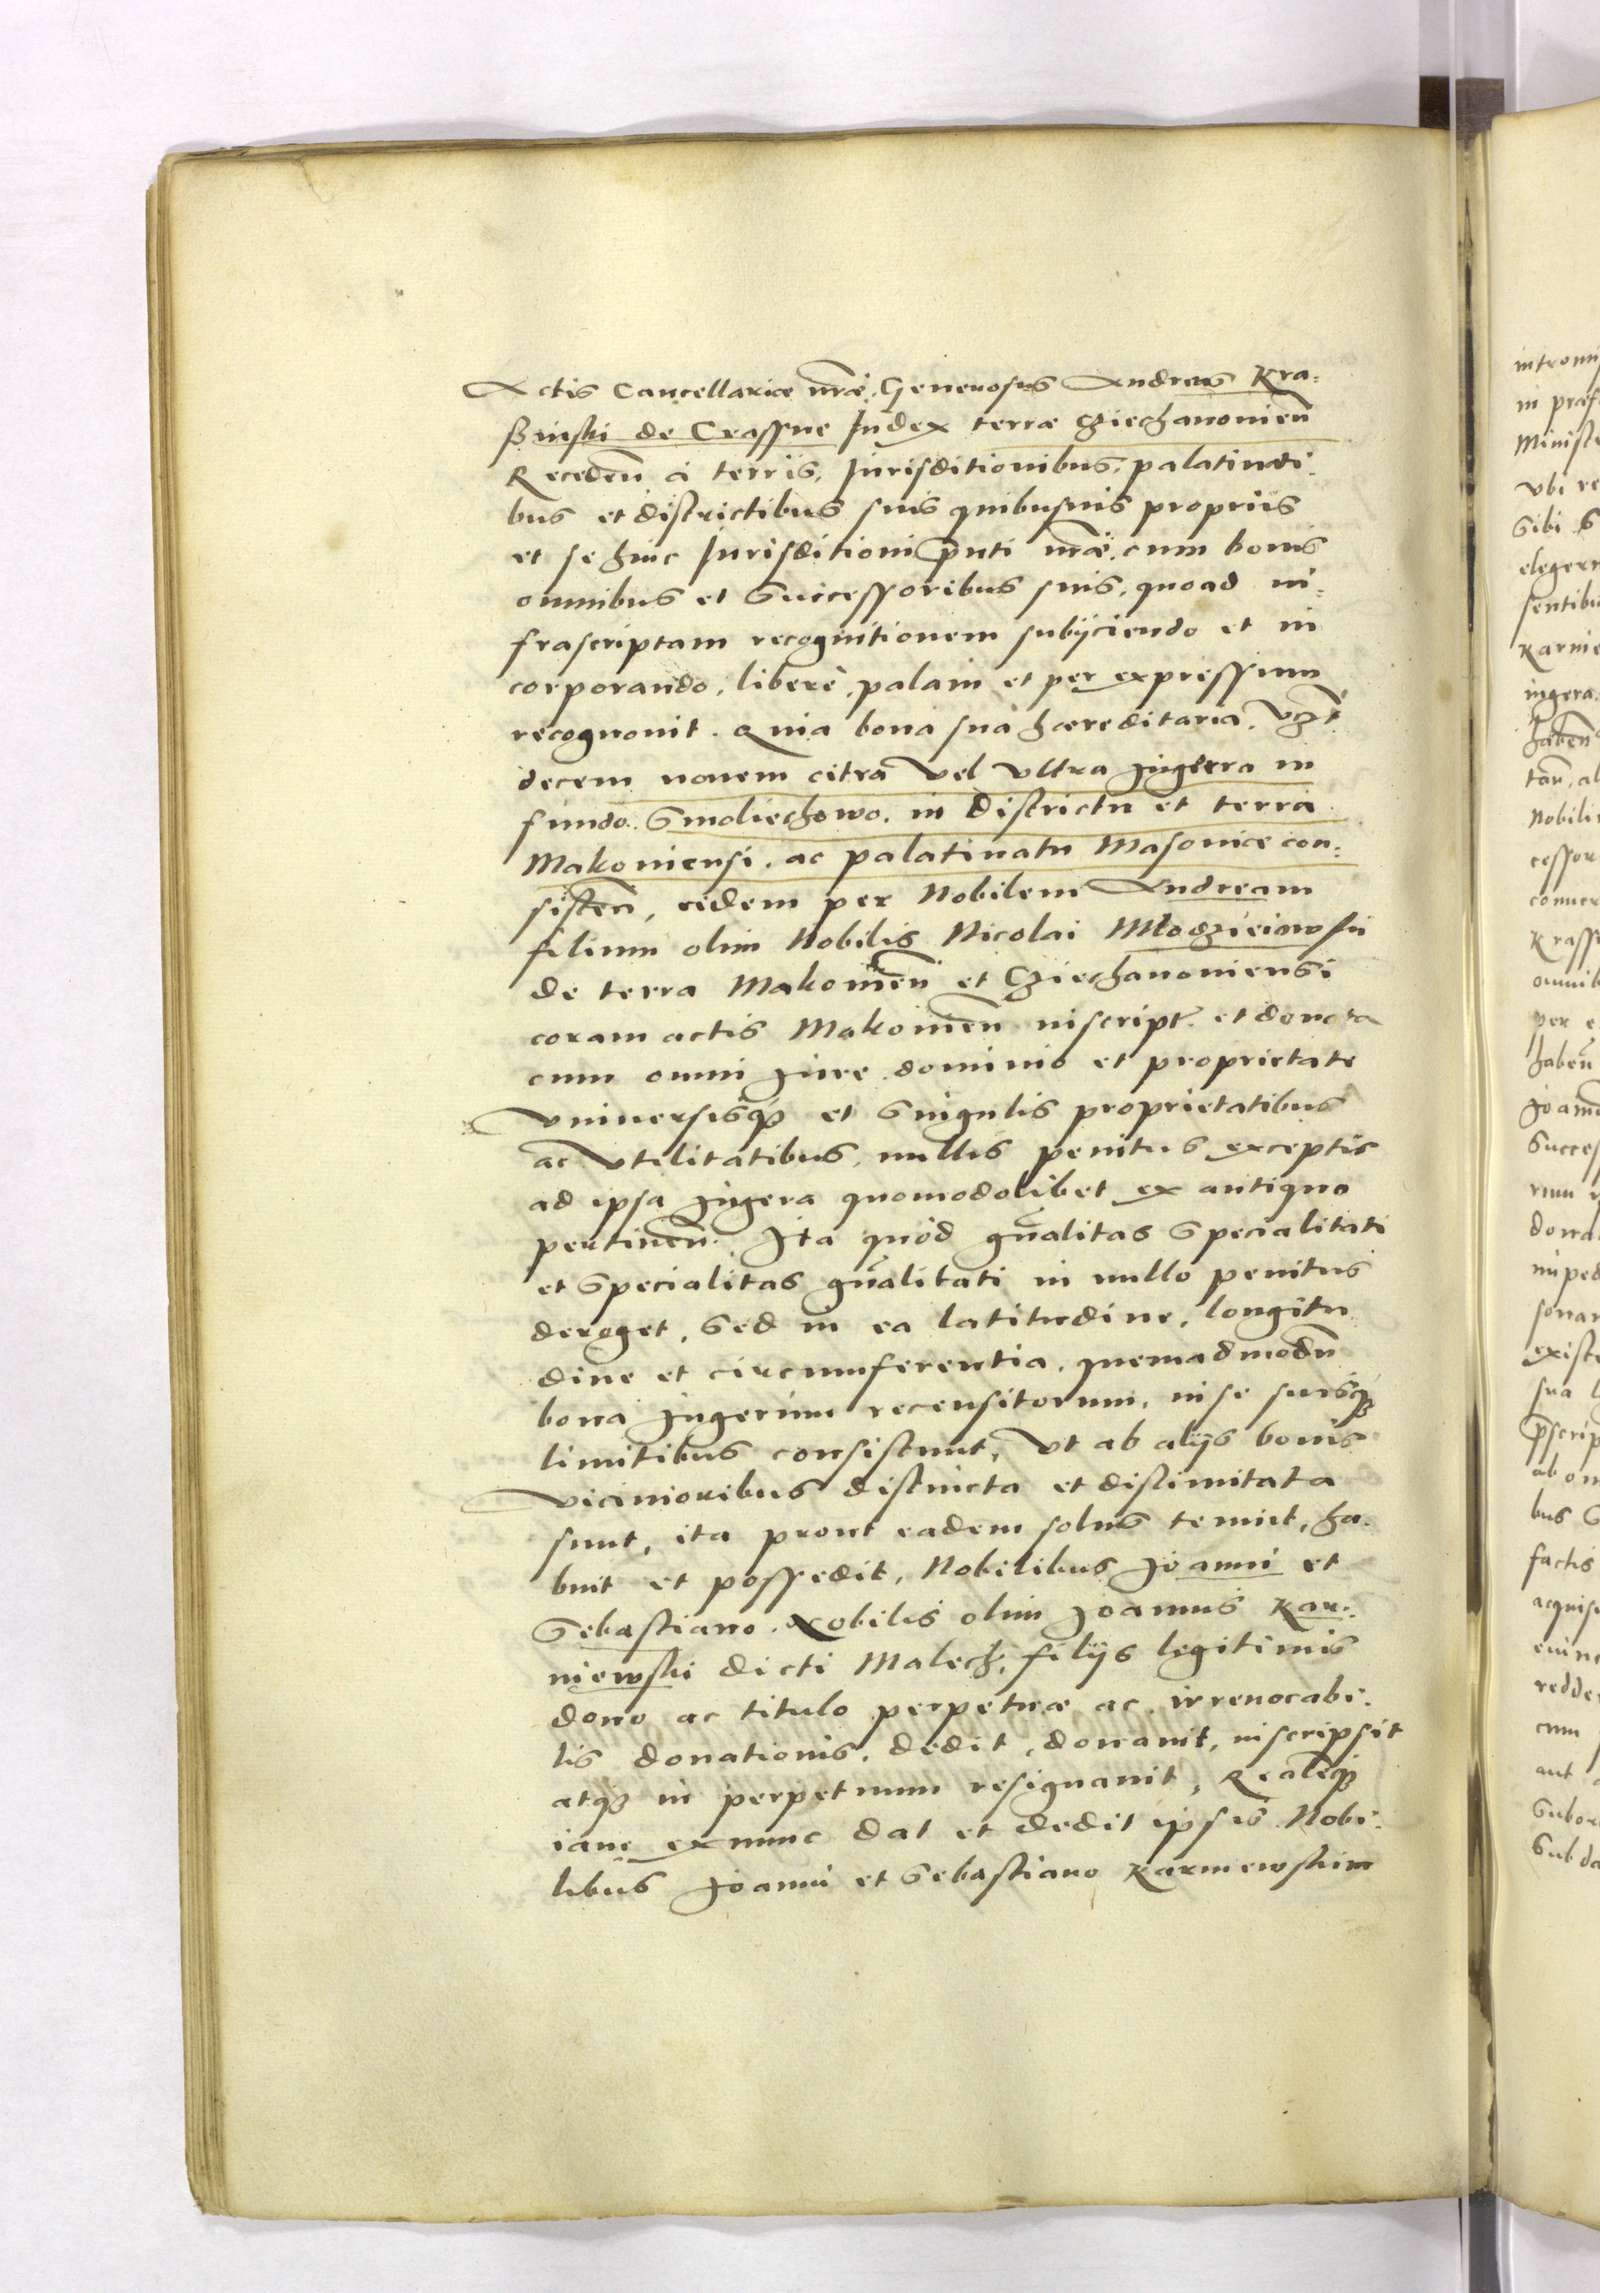 Actis Cancellariæ nræ. Generosus Andreas Kra-
ßinski de Crassne Iudex terræ Cziechanonien
Receden à terris, Iurisditionibus, palatinati-
bus et districtibus suis quibusuis proprijs
et se huic Iurisditioni pnti nræ. cum bonis
omnibus et Successoribus suis, quoad in-
frascriptam recognitionem subijciendo et in
corporando, liberè, palam et per expressum
recognouit. Quia bona sua hæreditaria. Vzt
decem nouem citra vel vltra jugera in
fundo. Smoliechowo. in districtu et terra
Makoniensi. ac palatinatu Masouiæ con-
sisten, eidem per Nobilem Andream
filium olim Nobilis Nicolai Młodzieiowski
de terra Makonien et Cziechanoniensi
coram actis Makonien inscript. et donata
cum omni jure dominio et proprietate
vniuersisq; et Singulis proprietatibus
ac vtilitatibus, nullis penitus exceptis
ad ipsa jugera quomodolibet ex antiquo
pertinen. Ita quòd gnalitas Specialitati
et Specialitas gnalitati in nullo penitus
deroget, Sed in ea latitudine, longitu
dine et circumferentia, quemadmodu
bona jugerum recensitorum, in se suisq;
limitibus consistunt, vt ab alijs bonis
vicinioribus distincta et dislimitata
sunt, ita prout eadem solus tenuit, ha-
buit et possedit, Nobilibus Joanni et
Sebastiano. Nobilis olim Joannis Kar-
niewski dicti Malech, filijs legitimis
dono ac titulo perpetuæ ac irreuocabi-
lis donationis, dedit, donauit, inscripsit
atq; in perpetuum resignauit, Realiq;
iam ex nunc dat et dedit ipsis Nobi-
libus Joanni et Sebastiano Karniewskim